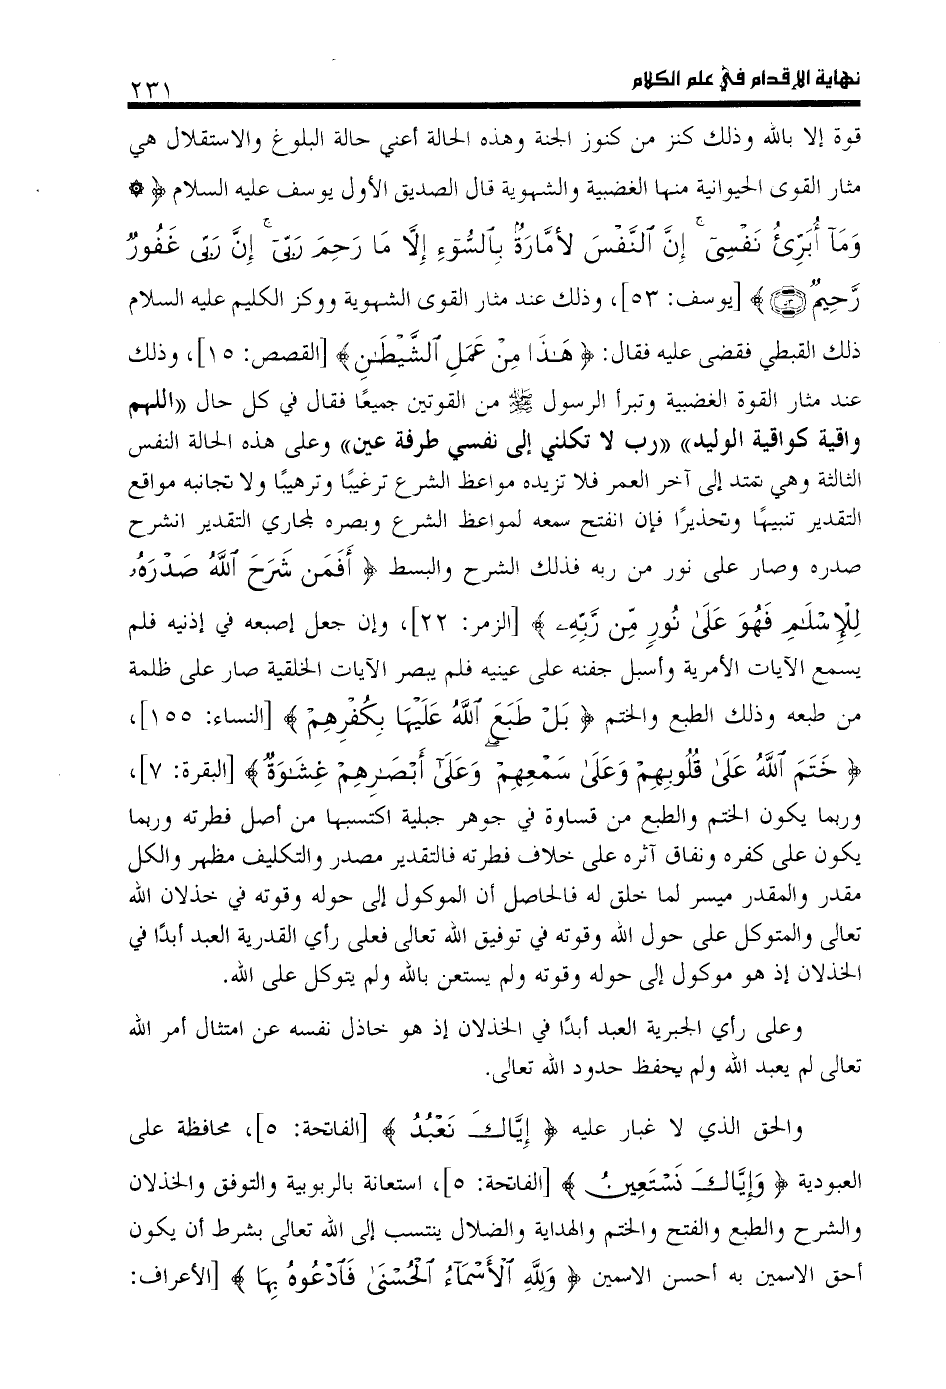 نهاية الإقدام في علم الكلام ٢٣١
قوة إلا بالله وذلك كنز من كنوز الجنة وهذه الحالة أعني حالة البلوغ والاستقلال هي
مثار القوى الحيوانية منها الغضبية والشهوية قال الصديق الأول يوسف عليه السلام ﴿ ۞
وَمَآ أُبَرِّئُ نَفْسِىٓ ۚ إِنَّ ٱلنَّفْسَ لَأَمَّارَةٌۢ بِٱلسُّوٓءِ إِلَّا مَا رَحِمَ رَبِّىٓ ۚ إِنَّ رَبِّى غَفُورٌ
رَّحِيمٌ ۝٥٣ ﴾ [يوسف: ٥٣]، وذلك عند مثار القوى الشهوية ووكز الكليم عليه السلام
ذلك القبطي فقضى عليه فقال: ﴿ هَـٰذَا مِنْ عَمَلِ ٱلشَّيْطَـٰنِ ﴾ [القصص: ١٥]، وذلك
عند مثار القوة الغضبية وتبرأ الرسول ﷺ من القوتين جميعًا فقال في كل حال «اللهم
واقية كواقية الوليد» «رب لا تكلني إلى نفسي طرفة عين» وعلى هذه الحالة النفس
الثالثة وهي تمتد إلى آخر العمر فلا تزيده مواعظ الشرع ترغيبًا وترهيبًا ولا تجانبه مواقع
التقدير تنبيهًا وتحذيرًا فإن انفتح سمعه لمواعظ الشرع وبصره لمجاري التقدير انشرح
صدره وصار على نور من ربه فذلك الشرح والبسط ﴿ أَفَمَن شَرَحَ ٱللَّهُ صَدْرَهُۥ
لِلْإِسْلَـٰمِ فَهُوَ عَلَىٰ نُورٍ مِّن رَّبِّهِۦ ﴾ [الزمر: ٢٢]، وإن جعل إصبعه في إذنيه فلم
يسمع الآيات الأمرية وأسبل جفنه على عينيه فلم يبصر الآيات الخلقية صار على ظلمة
من طبعه وذلك الطبع والختم ﴿ بَلْ طَبَعَ ٱللَّهُ عَلَيْهَا بِكُفْرِهِمْ ﴾ [النساء: ١٥٥]،
﴿ خَتَمَ ٱللَّهُ عَلَىٰ قُلُوبِهِمْ وَعَلَىٰ سَمْعِهِمْ ۖ وَعَلَىٰٓ أَبْصَـٰرِهِمْ غِشَـٰوَةٌ ﴾ [البقرة: ٧]،
وربما يكون الختم والطبع من قساوة في جوهر جبلية اكتسبها من أصل فطرته وربما
يكون على كفره ونفاق آثره على خلاف فطرته فالتقدير مصدر والتكليف مظهر والكل
مقدر والمقدر ميسر لما خلق له فالحاصل أن الموكول إلى حوله وقوته في خذلان الله
تعالى والمتوكل على حول الله وقوته في توفيق الله تعالى فعلى رأي القدرية العبد أبدًا في
الخذلان إذ هو موكول إلى حوله وقوته ولم يستعن بالله ولم يتوكل على الله.
وعلى رأي الجبرية العبد أبدًا في الخذلان إذ هو خاذل نفسه عن امتثال أمر الله
تعالى لم يعبد الله ولم يحفظ حدود الله تعالى.
والحق الذي لا غبار عليه ﴿ إِيَّاكَ نَعْبُدُ ﴾ [الفاتحة: ٥]، محافظة على
العبودية ﴿ وَإِيَّاكَ نَسْتَعِينُ ﴾ [الفاتحة: ٥]، استعانة بالربوبية والتوفق والخذلان
والشرح والطبع والفتح والختم والهداية والضلال ينتسب إلى الله تعالى بشرط أن يكون
أحق الاسمين به أحسن الاسمين ﴿ وَلِلَّهِ ٱلْأَسْمَآءُ ٱلْحُسْنَىٰ فَٱدْعُوهُ بِهَا ﴾ [الأعراف: